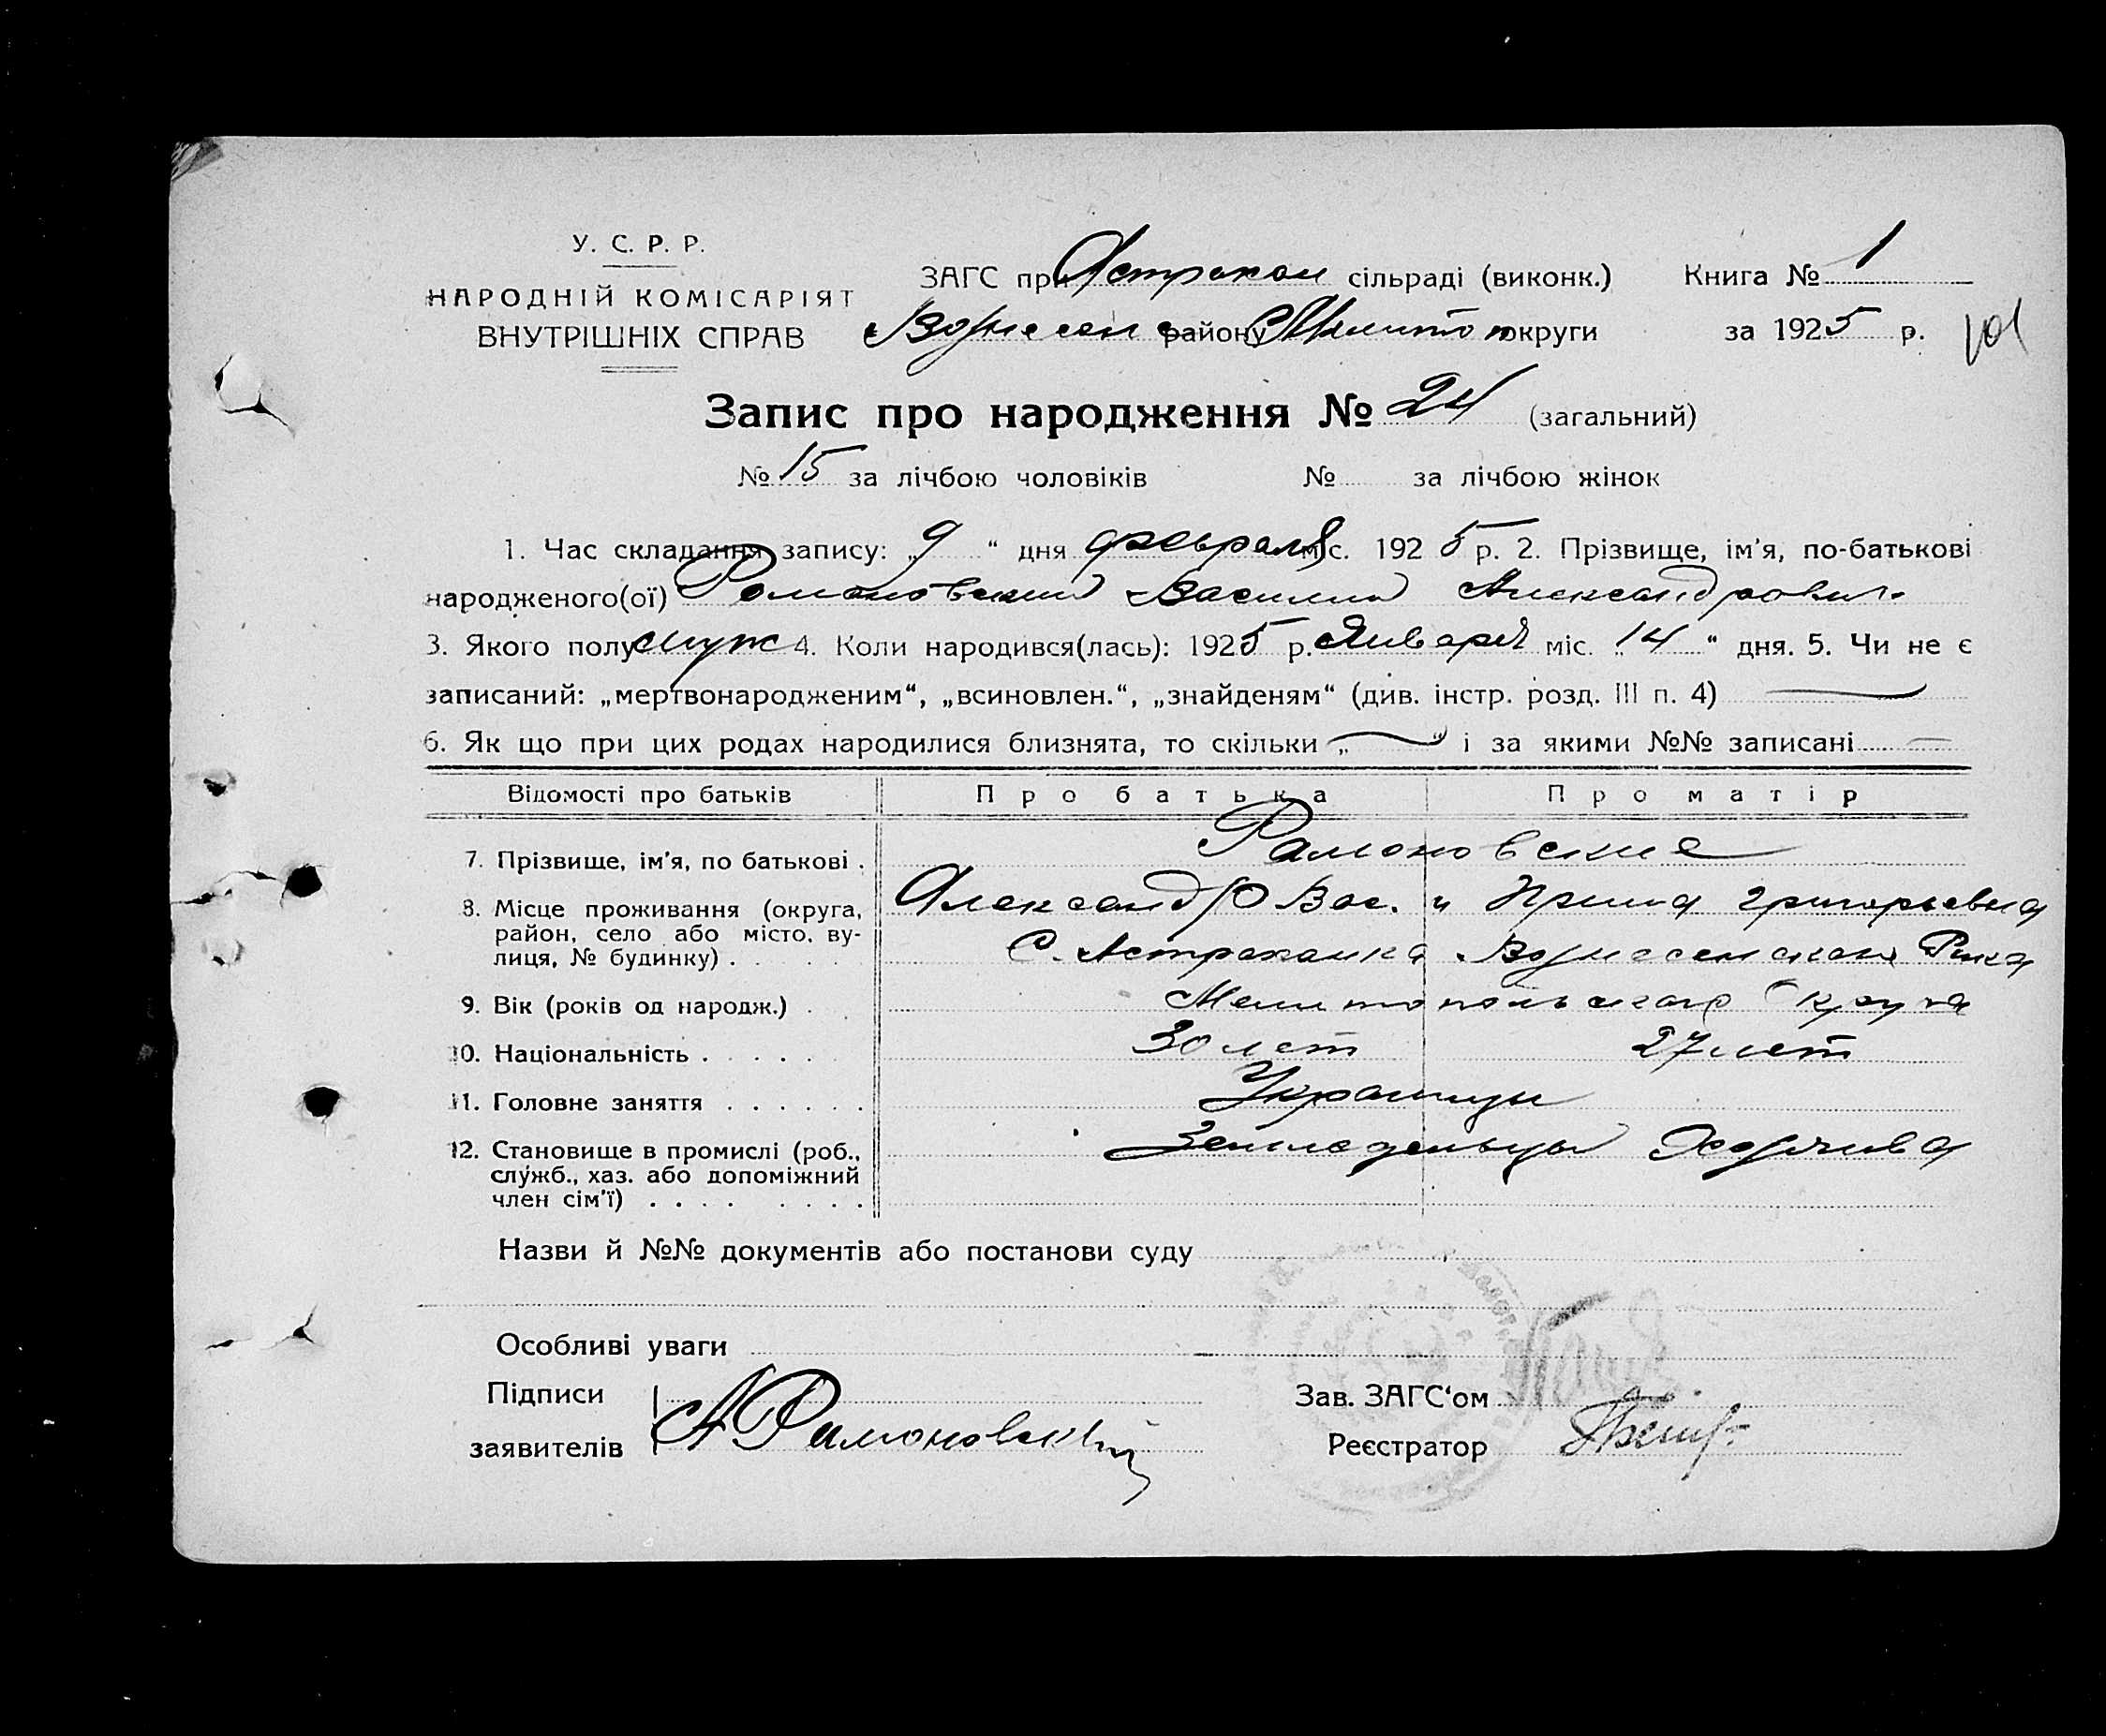 У. С. Р. Р.
НАРОДНІЙ КОМІСАРІЯТ
ВНУТРІШНІХ СПРАВ
ЗАГС при Астрахан сільраді (виконк.) Книга № 1
Вознесенс району Мелитоп округи за 1925 р.
101
Запис про народження № 24 (загальний)
№ 15 за лічбою чоловіків № за лічбою жінок
1. Час складання запису: „9“ дня февраля міс. 1925 р. 2. Прізвище, ім'я, по-батькові
народженого(ої) Романовский Василий Александрович
3. Якого полу муж 4. Коли народився(лась): 1925 р. Января міс. „14“ дня. 5. Чи не є
записаний: „мертвонародженим“, „всиновлен.“, „знайденям“ (див. інстр. розд. III п. 4) —
6. Як що при цих родах народилися близнята, то скільки „—“ і за якими №№ записані —
Відомості про батьків Про батька Про матір
7. Прізвище, ім'я, по батькові . Рамоновские
8. Місце проживання (округа, Александр Вас. и Ирина Григорьевна
район, село або місто, ву-
лиця, № будинку) . С. Астраханка Вознесенскаго Рика
9. Вік (років од народж.) . Мелитопольскаго Округа
10. Національність . . . . . 30 лет 27 лет
11. Головне заняття . . . . . . Украинцы
12. Становище в промислі (роб., Земледельцы Хозяева
служб., хаз. або допоміжний
член сім'ї) . . . . . . . .
Назви й №№ документів або постанови суду
Особливі уваги
Підписи
заявителів А Рамоновский
Зав. ЗАГС'ом
Реєстратор